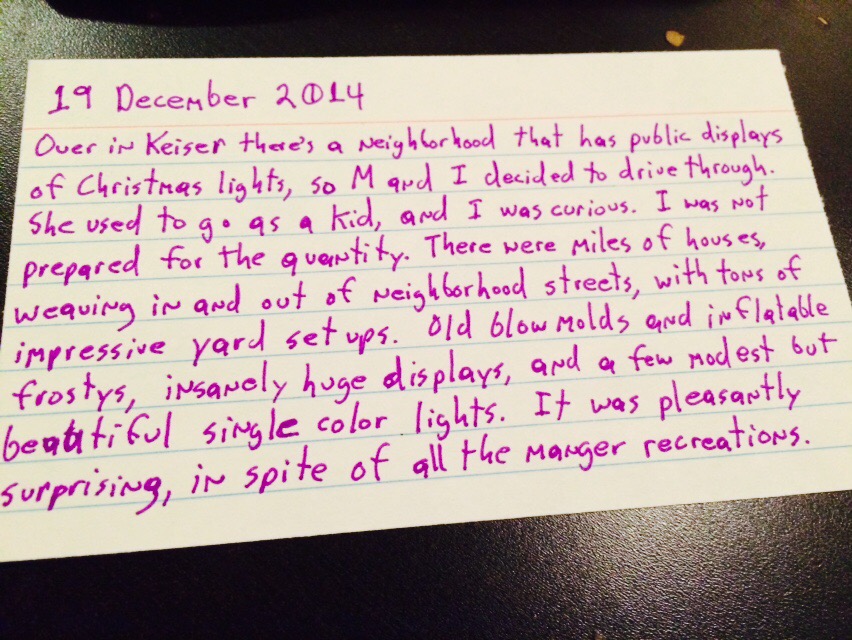 19 December 2014
Over in Keiser there's a neighborhood that has public displays
of Christmas lights, so M and I decided to drive through.
She used to go as a kid, and I was curious. I was not
prepared for the quantity. There were miles of houses,
weaving in and out of neighborhood streets, with tons of
impressive yard set ups. Old blow molds and inflatable
frostys, insanely huge displays, and a few modest but
beautiful single color lights. It was pleasantly
surprising, in spite of all the manger recreations.